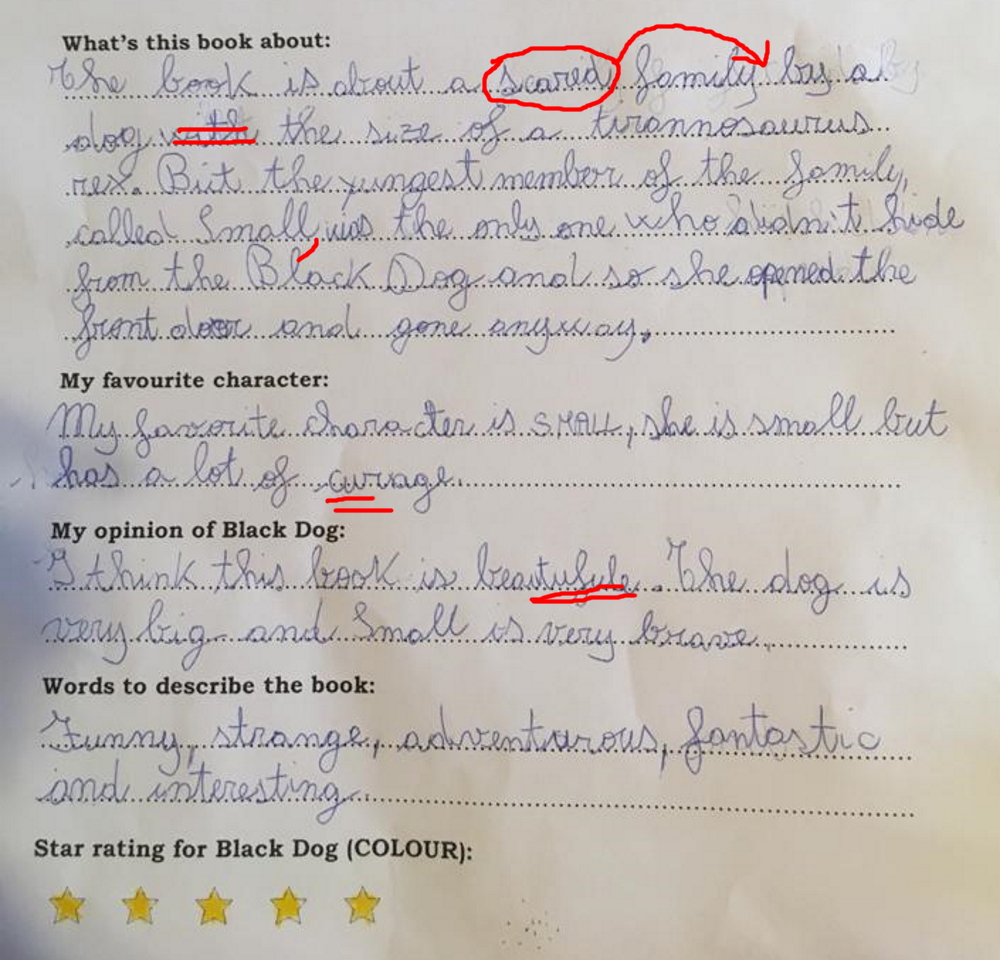 What's this book about:
The book is about a scared family by a
dog with the size of a tirannosaurus
rex. But the yungest member of the family,
called Small was the only one who didn't hide
from the Black Dog and so she opened the
front door and gone anyway.
My favourite character:
My favorite character is SMALL, she is small but
has a lot of curage.
My opinion of Black Dog:
I think this book is beautufule. The dog is
very big and Small is very brave.
Words to describe the book:
Funny, strange, adventurous, fantastic
and interesting.
Star rating for Black Dog (COLOUR):